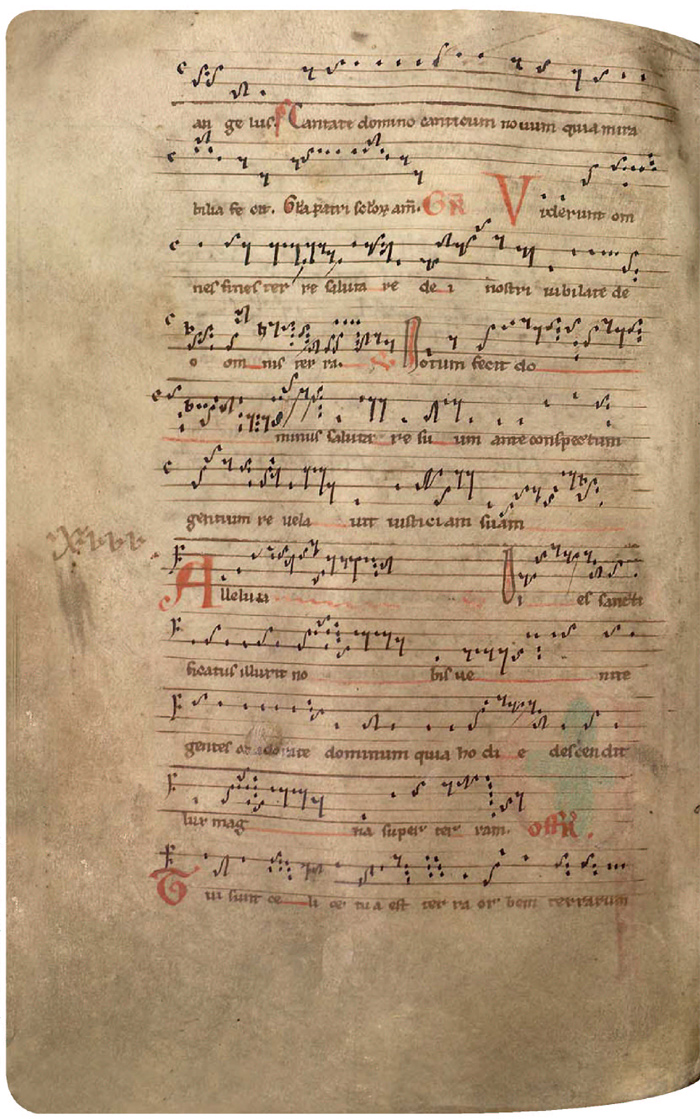 an ge lus. Cantate domino canticum nouum quia mira
bilia fe cit. Gła patri sclox am. GR Viderunt om
nes fines ter re saluta re de i nostri iubilate de
o om nis ter ra. Notum fecit do
minus saluta re su um ante conspectum
gentium re uela uit iusticiam suam
Alleluia Di es sancti
ficatus illuxit no bis ue nite
gentes et adorate dominum quia ho di e descendit
lux mag na super ter ram. Offr.
Tui sunt ce li et tu a est ter ra or bem terrarum